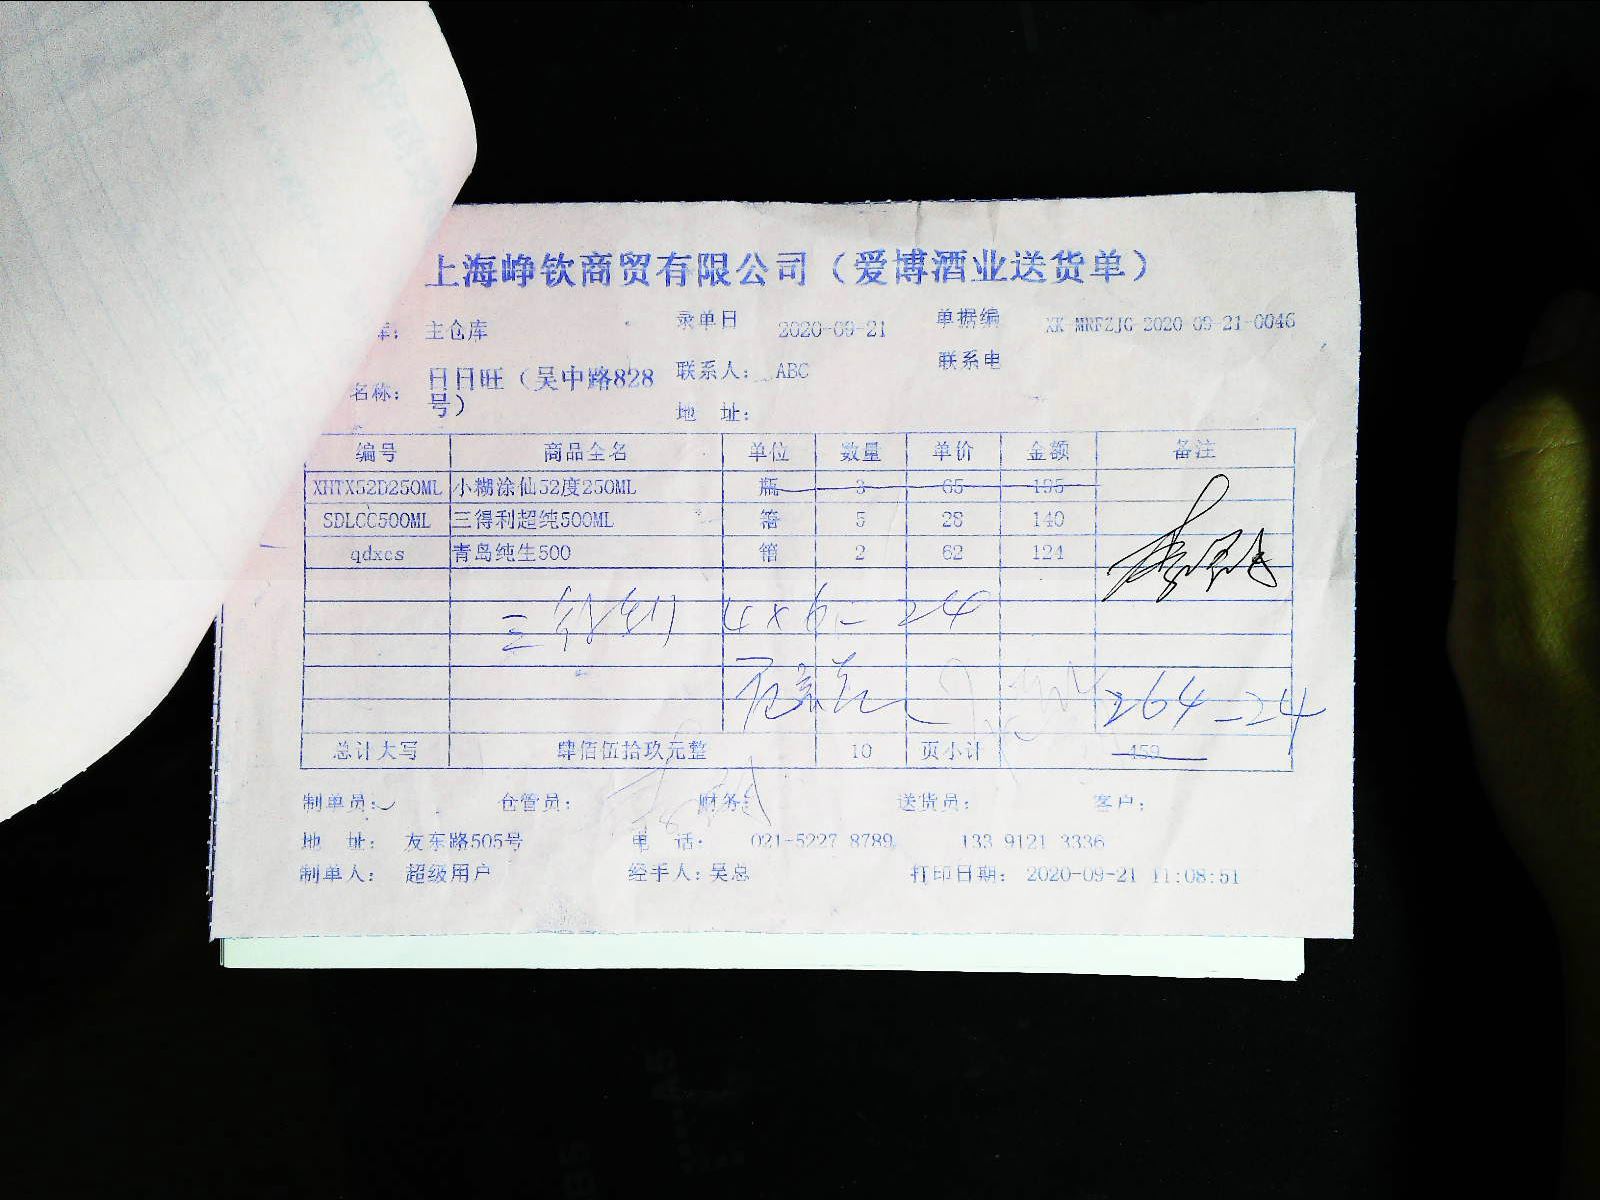 上海峥钦商贸有限公司（爱博酒业送货单）
库： 主仓库 录单日 2020-09-21 单据编 XK-MRFZJC-2020-09-21-0046
名称： 日日旺（吴中路828号） 联系人： ABC 联系电
地 址：
编号 商品全名 单位 数量 单价 金额 备注
XHTX52D250ML 小糊涂仙52度250ML 瓶 3 65 195
SDLCC500ML 三得利超纯500ML 箱 5 28 140
qdxcs 青岛纯生500 箱 2 62 124
三得利 4×6=24
264-24
总计大写 肆佰伍拾玖元整 10 页小计 459
制单员： 仓管员： 财务： 送货员： 客户：
地 址： 友东路505号 电 话： 021-5227 8789 133 9121 3336
制单人： 超级用户 经手人：吴总 打印日期： 2020-09-21 11:08:51